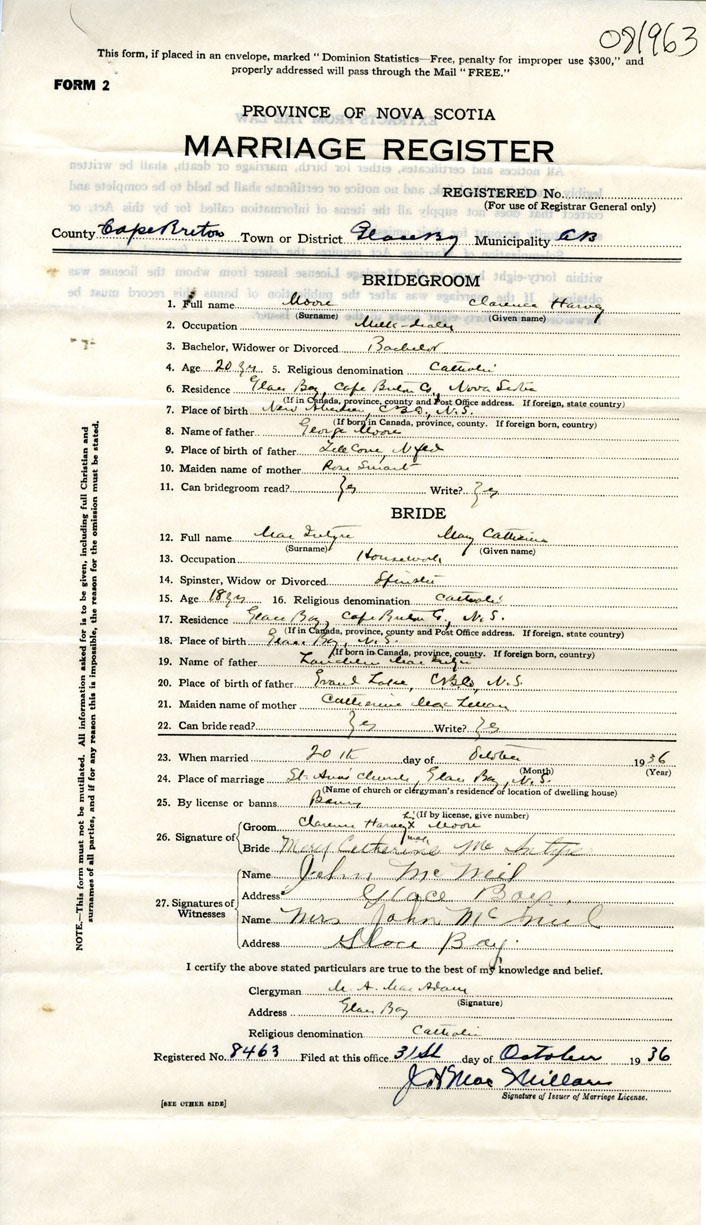 081963
This form, if placed in an envelope, marked “Dominion Statistics—Free, penalty for improper use $300,” and
properly addressed will pass through the Mail “FREE.”
FORM 2
PROVINCE OF NOVA SCOTIA
MARRIAGE REGISTER
REGISTERED No.
(For use of Registrar General only)
County Cape Breton Town or District Glace Bay Municipality CB
BRIDEGROOM
1. Full name Moore Clarence Harvey
(Surname) (Given name)
2. Occupation Milk-dealer
3. Bachelor, Widower or Divorced Bachelor
4. Age 20 yrs 5. Religious denomination Catholic
6. Residence Glace Bay, Cape Breton Co, Nova Scotia
(If in Canada, province, county and Post Office address. If foreign, state country)
7. Place of birth New Aberdeen, C.B.Co., N.S.
(If born in Canada, province, county. If foreign born, country)
8. Name of father George Moore
9. Place of birth of father Cove, Nfld
10. Maiden name of mother Rose Smart
11. Can bridegroom read? Yes Write? Yes
BRIDE
12. Full name Mac Intyre Mary Catherine
(Surname) (Given name)
13. Occupation Housework
14. Spinster, Widow or Divorced Spinster
15. Age 18 yrs 16. Religious denomination Catholic
17. Residence Glace Bay, Cape Breton Co., N.S.
(If in Canada, province, county and Post Office address. If foreign, state country)
18. Place of birth Glace Bay, N.S.
(If born in Canada, province, county. If foreign born, country)
19. Name of father Lauchlin Mac Intyre
20. Place of birth of father Grand Lake, C.B.Co, N.S.
21. Maiden name of mother Catherine Mac
22. Can bride read? Yes Write? Yes
23. When married 20th day of October 1936
(Month) (Year)
24. Place of marriage St. Ann's Church, Glace Bay, N.S.
(Name of church or clergyman's residence or location of dwelling house)
25. By license or banns Banns
(If by license, give number)
26. Signature of
Groom Clarence Harvey his X mark Moore
Bride Mary Catherine Mc Intyre
27. Signatures of Witnesses
Name John McNeil
Address Glace Bay
Name Mrs John McNeil
Address Glace Bay.
I certify the above stated particulars are true to the best of my knowledge and belief.
Clergyman M. A. MacAdam
(Signature)
Address Glace Bay
Religious denomination Catholic
Registered No. 8463 Filed at this office 31st day of October 1936
J H Mac Millan
Signature of Issuer of Marriage License.
[SEE OTHER SIDE]
NOTE.—This form must not be mutilated. All information asked for is to be given, including full Christian and
surnames of all parties, and if for any reason this is impossible, the reason for the omission must be stated.